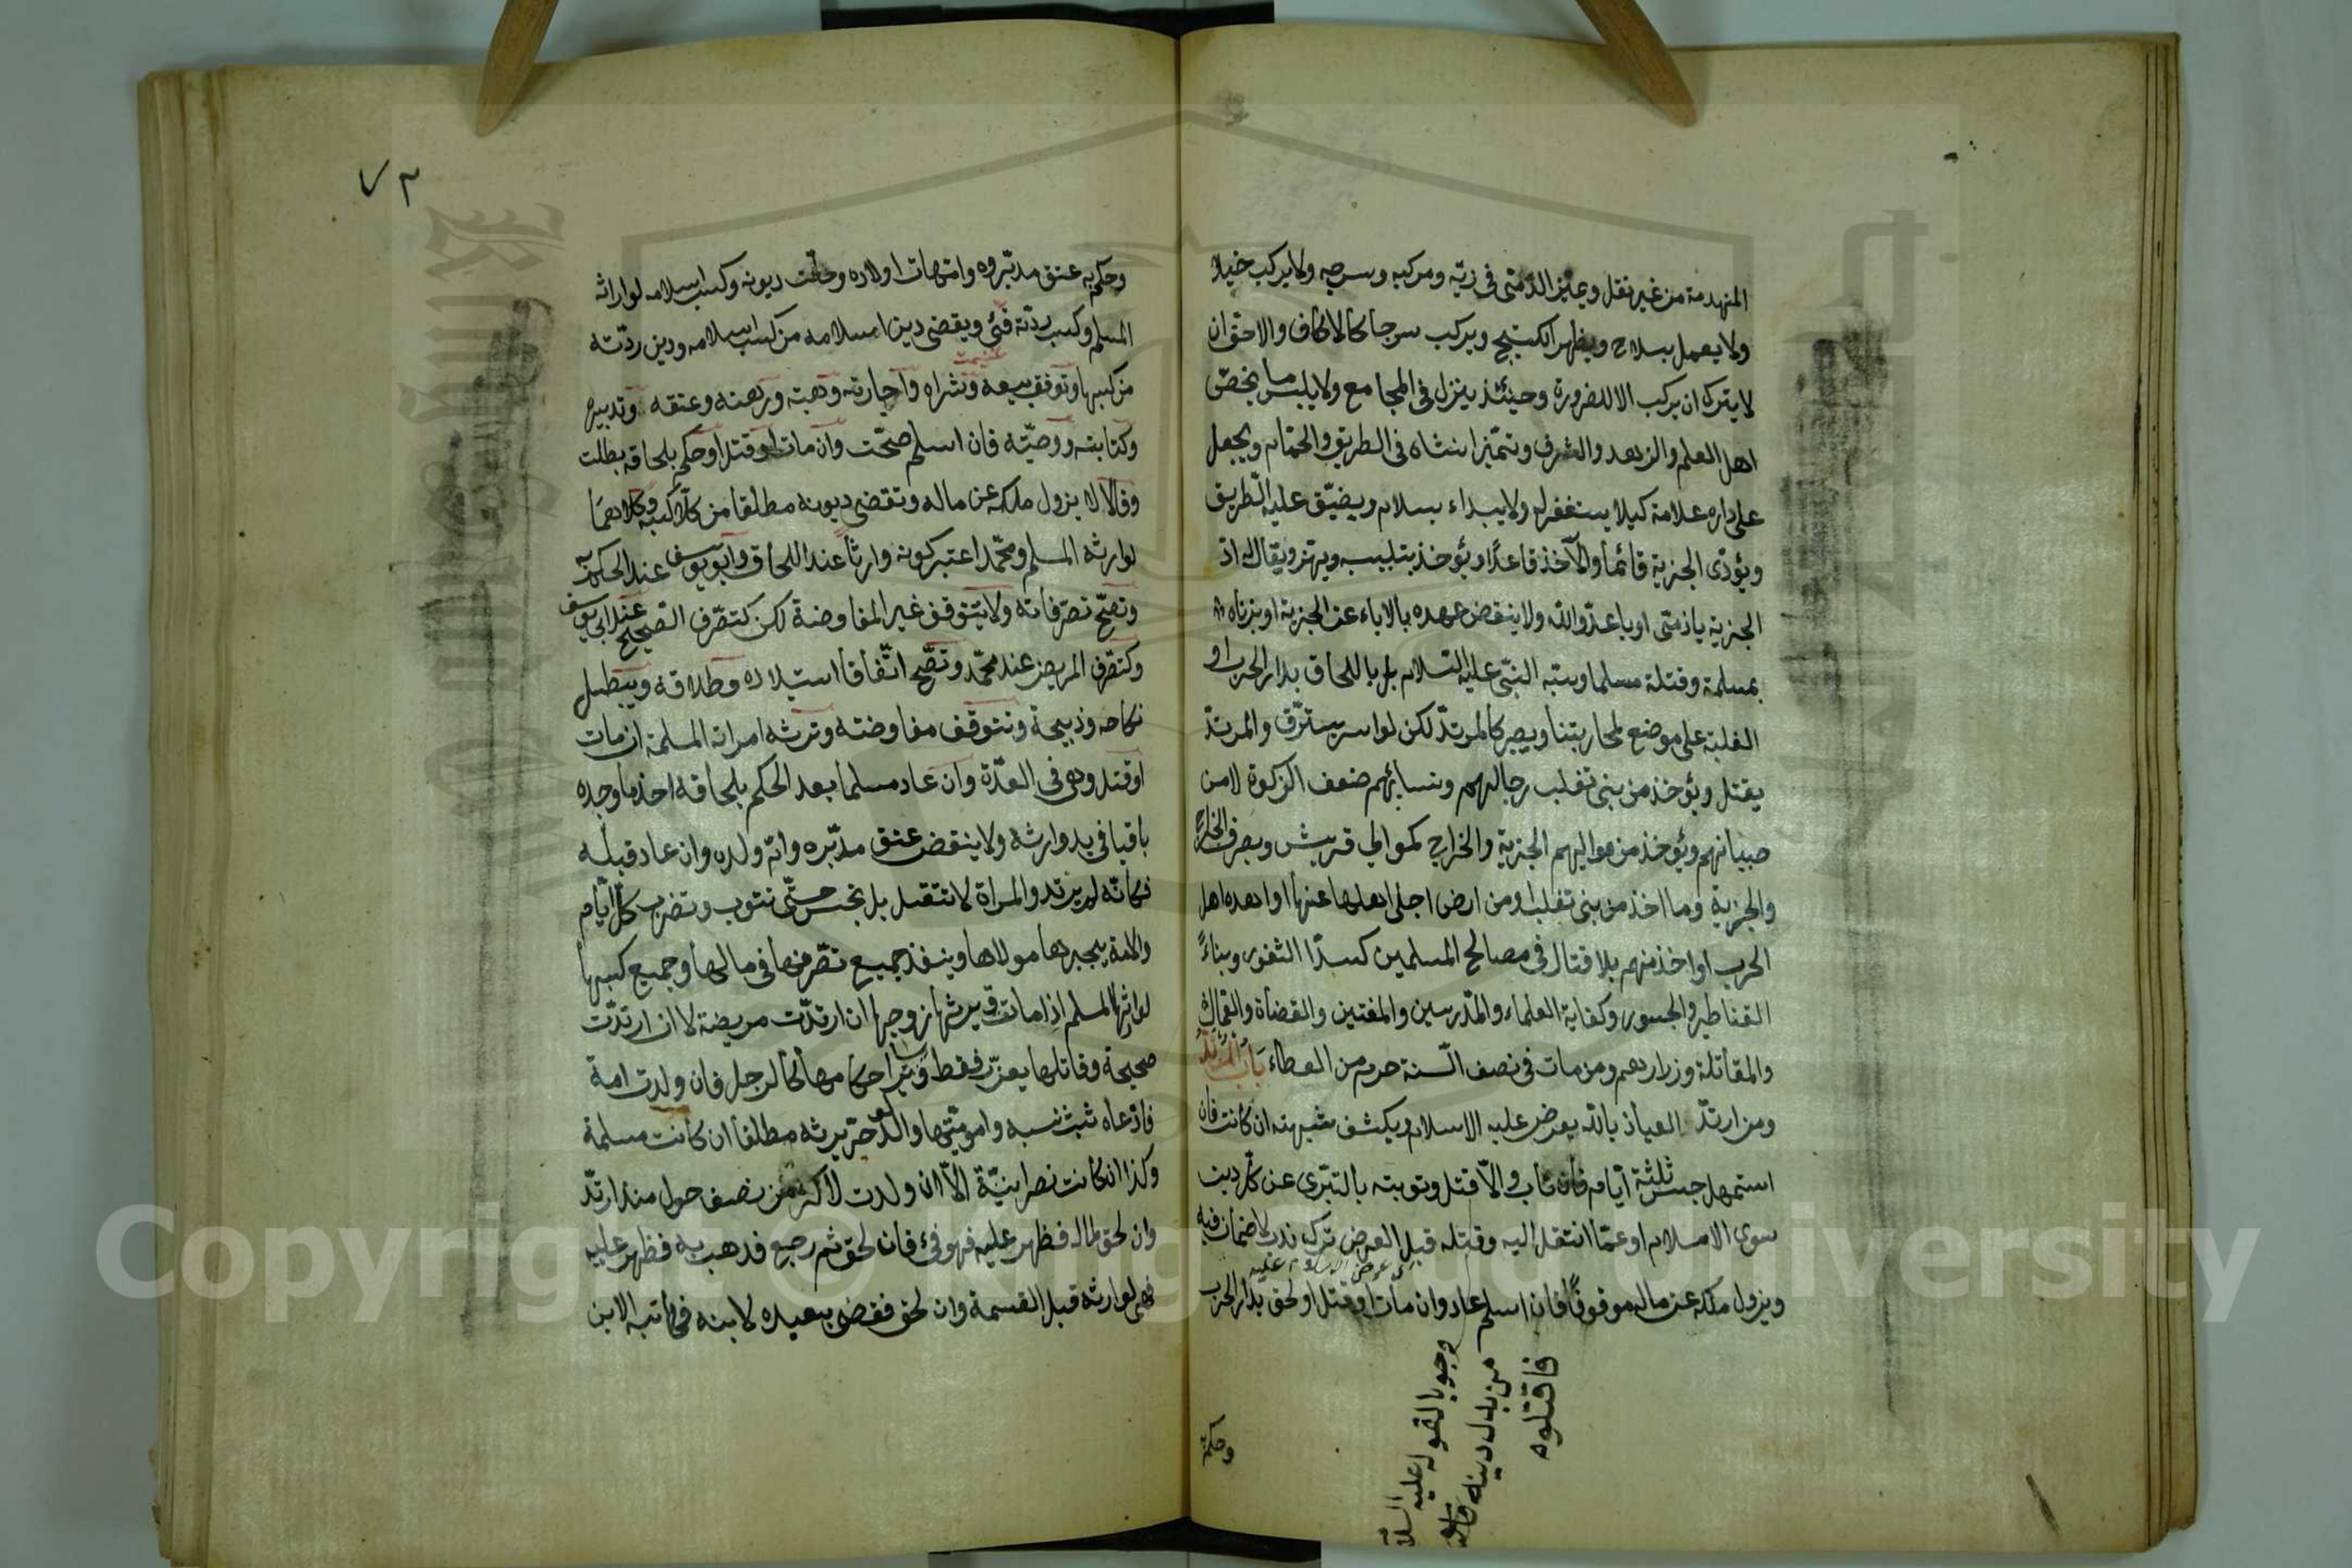 المنهدمة من غير نقل ويميز الذمّى فى زيّه ومركبه وسرجه ولا يركب خيلا
ولا يعمل بسلاح ويظهر الكستيج ويركب سرجا كالاكاف والاحق ان
لا يترك ان يركب الا للضرورة وحينئذ ينزل فى المجامع ولا يلبس ما يخصّ
اهل العلم والزهد والشرف وتميّز انثاه فى الطريق والحمّام ويجعل
على داره علامة كيلا يستغفر له ولا يبداء بسلام ويضيّق عليه الطّريق
ويؤدّى الجزية قائما والآخذ قاعدًا ويؤخذ بتلبيبه ويهزّ ويقال له ادّ
الجزية ياذمّى او يا عدوّ الله ولا ينقض عهده بالاباء عن الجزية او بزناه
بمسلمة وقتله مسلما وسبّه النبّى عليه السّلام بل باللحاق بدار الحرب او
الغلبة على موضع لمحاربتنا ويصير كالمرتدّ لكن لو اسر يسترّق والمرتدّ
يقتل ويؤخذ من بنى تغلب رجالهم ونسائهم ضعف الزكوة لا من
صبيانهم ويؤخذ من مواليهم الجزية والخراج كموالى قريش ويصرف الخراج
والجزية وما اخذ من بنى تغلب او من ارض اجلى اهلها عنها او اهداه اهل
الحرب او اخذ منهم بلا قتال فى مصالح المسلمين كسدّ الثغور وبناءً
القناطير والجسور وكفاية العلماء والمدّرسين والمفتين والقضاة والعمال
والمقاتلة وزراريهم ومن مات فى نصف السّنة حرم من العطاء باب المرتدّ
ومن ارتدّ العياذ بالله يعرض عليه الاسلام ويكشف شبهته ان كانت فان
استمهل حبس ثلثة ايّام فان تاب والّا قتل وتوبته بالتبرّى عن كلّ دين
سوى الاسلام او عمّا انتقل اليه وقتله قبل العرض ترك ندب لا ضمان فيه
عرض الاسلام عليه
ويزول ملكه عن ماله موقوفًا فان اسلم عاد وان مات او قتل او لحق بدار الحرب
وجوبا لقوله عليه السلام
من بدل دينه
فاقتلوه
وحكم
٧٣
وحكم به عتق مدبّروه وامّهات اولاده وحلّت ديونه وكسب اسلامه لوارثه
المسلم وكسب ردّته فئ ويقضى دين اسلامه من كسب اسلامه ودين ردّته
غنيمت
من كسبها وتوقف بيعه وشراه واجارته وهبته ورهنه وعتقه وتدبيره
وكتابته ووصيّته فان اسلم صحّت وان مات او قتل او حكم بلحاقه بطلت
وقالا لا يزول ملكه عن ماله وتقضى ديونه مطلقا من كلا كسبيه وكلاهما
لوارثه المسلم ومحمّد اعتبر كونه وارثا عند اللحاق وابو يوسف عند الحكم به
وتصحّ تصرّفاته ولا يتوقف غير المفاوضة لكن كتصّرف الصّحيح عند ابى يوسف
وكتصّرف المريض عند محمّد وتصّح اتّفاقا استيلاده وطلاقه ويبطل
نكاحه وذبيحته وتتوقف مفاوضته وترثه امراته المسلمة ان مات
او قتل وهى فى العدّة وان عاد مسلما بعد الحكم بلحاقه اخذ ما وجده
باقيا فى يد وارثه ولا ينقض عتق مدبّره وامّ ولده وان عاد قبله
فكانّه لم يرتد والمراة لا تقتل بل تحبس حتّى تتوب وتضرب كلّ ايّام
والامة يجبرها مولاها وينفذ جميع تصّرفها فى مالها وجميع كسبها
لوارثها المسلم اذا ماتت ويرثها زوجها ان ارتدّت مريضة لا ان ارتدّت
صحيحة وقاتلها يعزّر فقط وسائر احكامها كالرجل فان ولدت امة
فادّعاه ثبت نسبه واموميّتها والولد حرّ يرثه مطلقا ان كانت مسلمة
وكذا ان كانت نصرانيّة الّا ان ولدت لاكثر من نصف حول منذ ارتدّ
وان لحق بماله فظهر عليه فهو فئ فان لحق ثم رجع فذهب به فظهر عليه
فهى لوارثه قبل القسمة وان لحق فقضى بعبده لابنه فكاتبه الابن